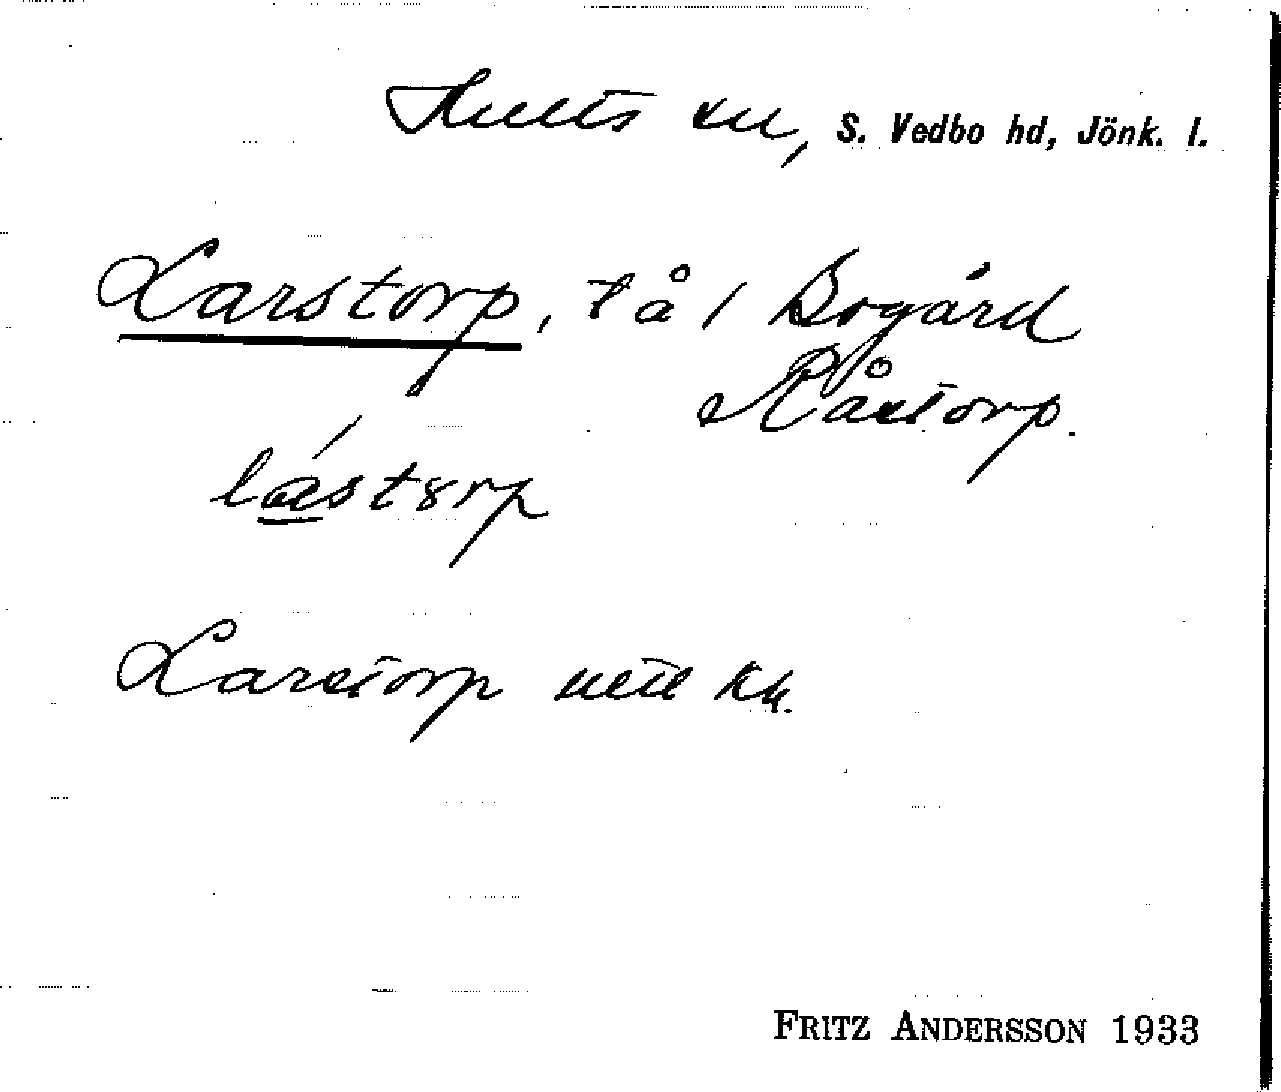 Hults sn, S. Vedbo hd, Jönk. l.
Larstorp, t å / Bogård
Råstorp.
lastȣrp
Larstorp utt kk.
FRITZ ANDERSSON 1933